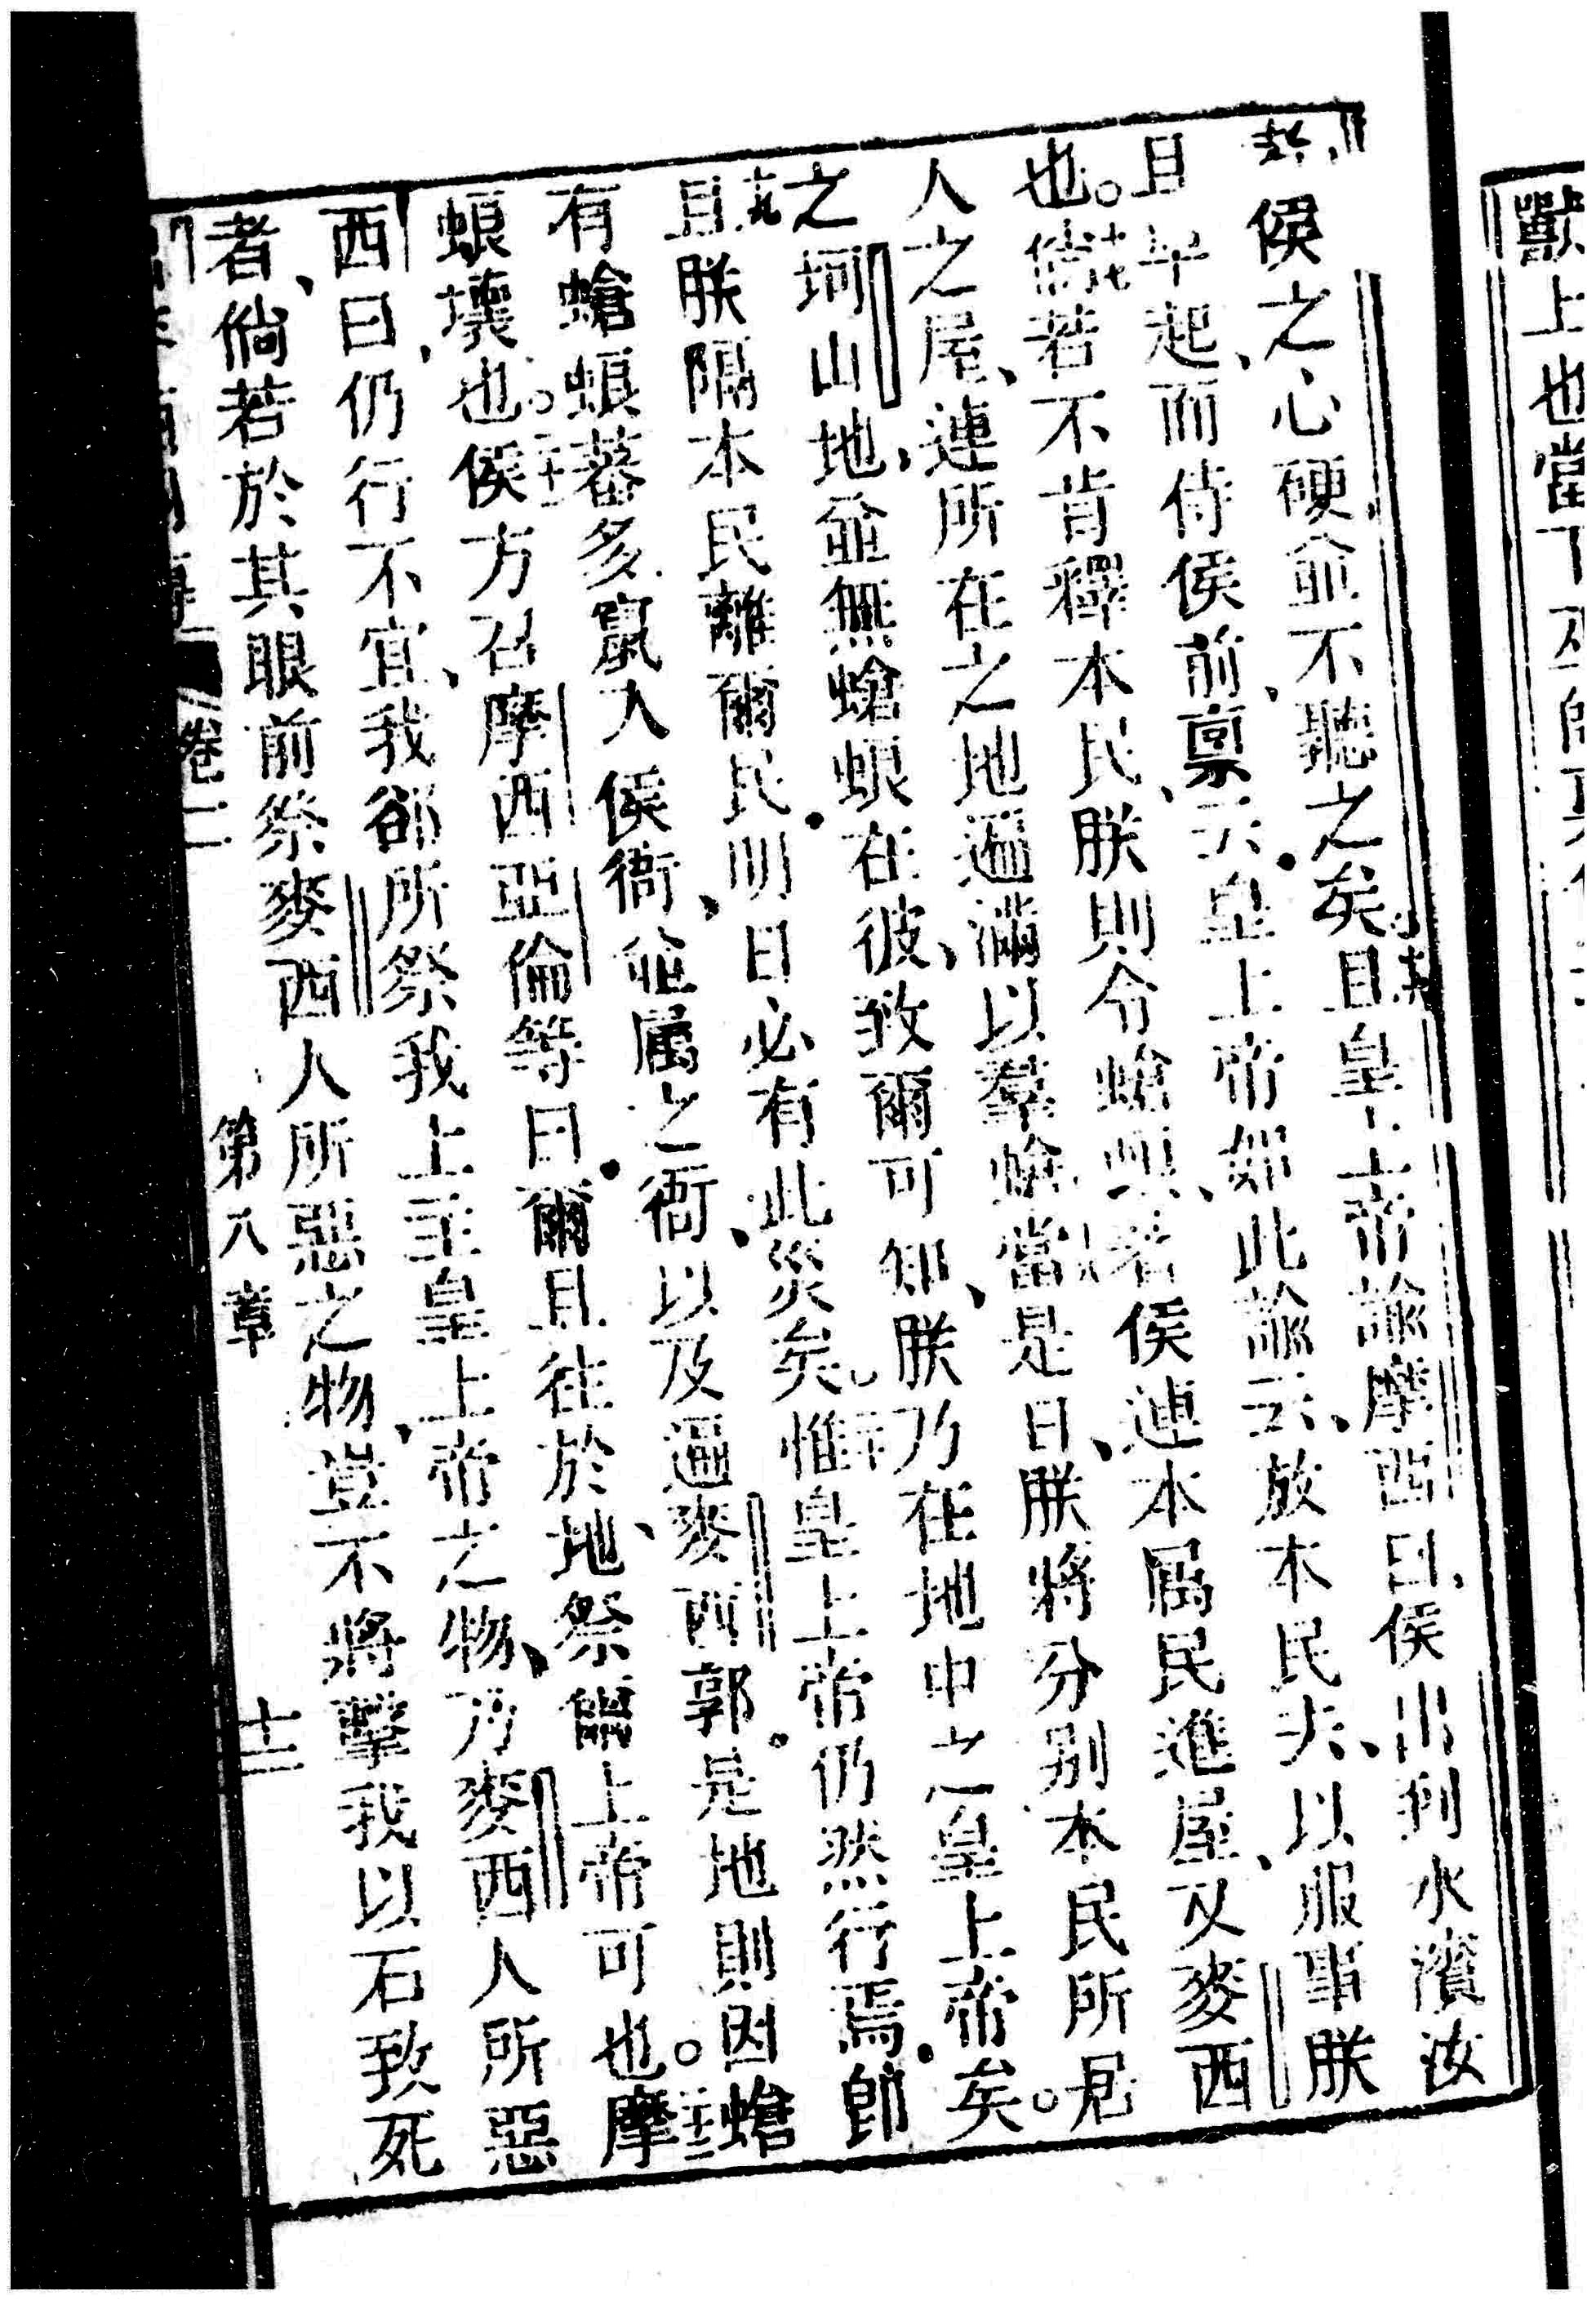 獸上也當下
侯之心硬、並不聽之矣。且皇上帝諭摩西曰、侯出到水濱、汝
且早起、而侍侯前、禀云、皇上帝如此諭云、放本民去、以服事朕
也。倘若不肯釋本民、朕則令螥蜋、與若侯連本屬民進屋、又麥西
人之屋、連所在之地遍滿以羣螥。當是日、朕將分別本民所居
之坷山地、並無螥蜋在彼、致爾可知、朕乃在地中之皇上帝矣。
且朕隔本民離爾民、明日必有此災矣。惟皇上帝仍然行焉、卽
有螥蜋蕃多、竄入侯衙、並屬之衙、以及遍麥西郭、是地則因螥
蜋壞也。侯方召摩西亞倫等曰、爾且往於地、祭爾上帝可也。摩
西曰、仍行不宜、我卻所祭我上主皇上帝之物、乃麥西人所惡
者、倘若於其眼前祭麥西人所惡之物、豈不將擊我以石致死
卷二 第八章 十二